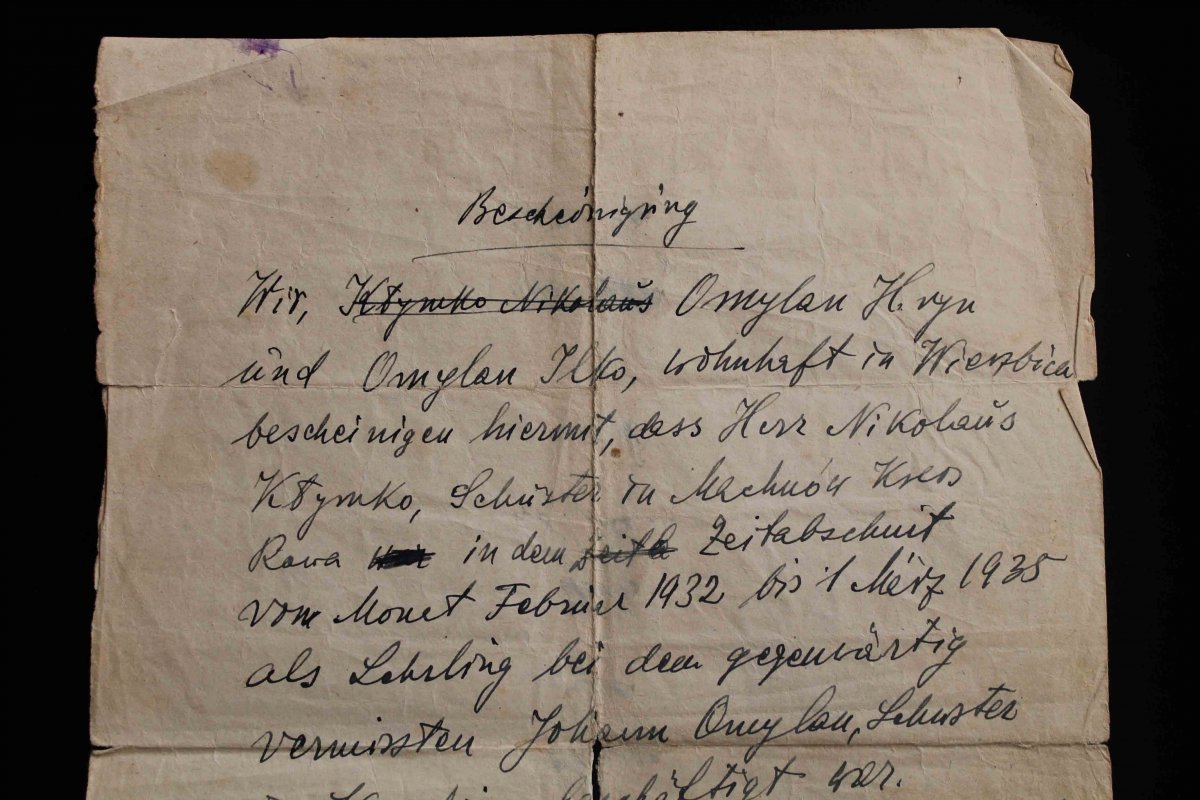 Bescheinigung
Wir, Kłymko Nikolaus Omylan Hryn
und Omylan Ilko, wohnhaft in Wierzbica
bescheinigen hiermit, dass Herr Nikolaus
Kłymko, Schuster in Machnów Kreis
Rawa in dem Zeitabschnit
vom Monet Februar 1932 bis 1 März 1935
als Lehrling bei dem gegenwärtig
vermissten Johann Omylan, Schuster
beschäftigt war.